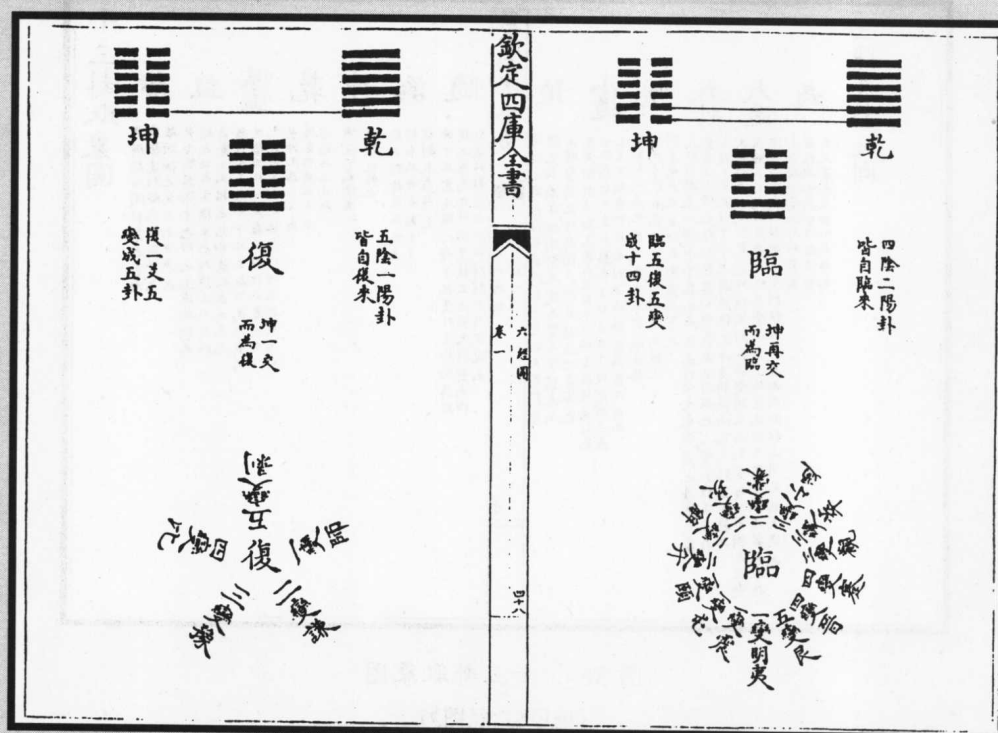 乾
四陰二陽卦
皆自臨來
臨
坤再交
而為臨
坤
臨五復五變
成十四卦
臨
一變明夷
五變艮
四變晉
四變蹇
三變觀
欽定四庫全書
六經圖
卷一
四十八
乾
五陰一陽卦
皆自復來
復
坤一交
而為復
坤
復一爻五
變成五卦
復
一變師
二變謙
三變豫
四變比
五變剝